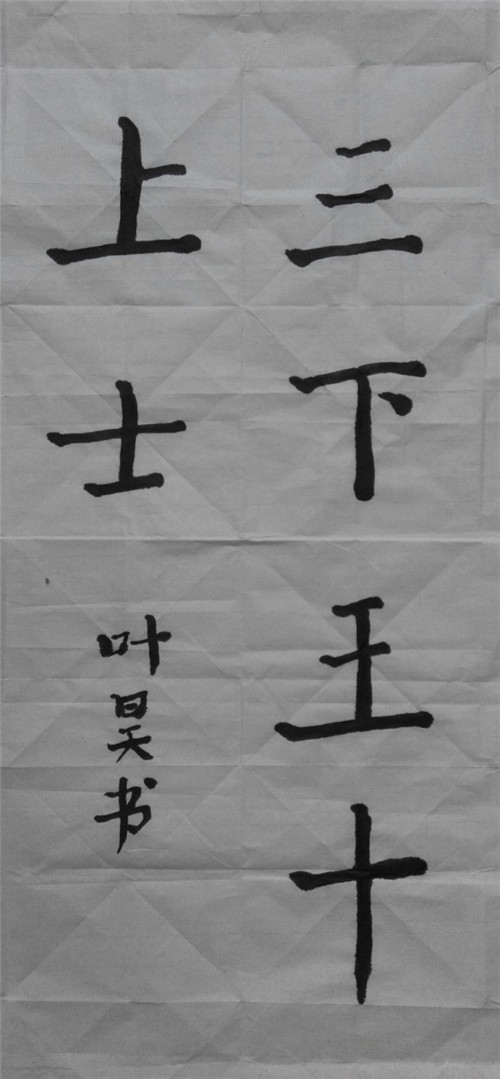 三下王十
上士
叶昊书